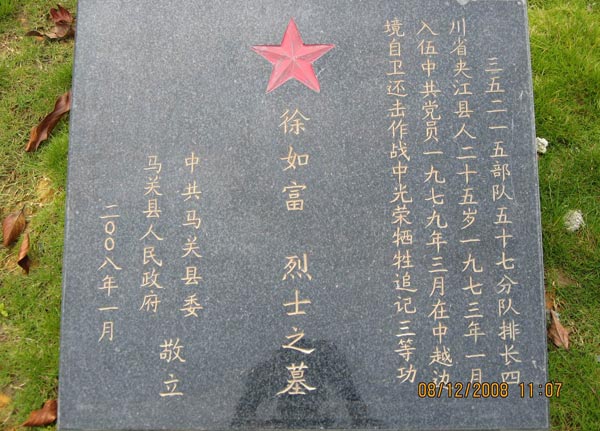 三五二一五部队五十七分队排长四
川省夹江县人二十五岁一九七三年一月
入伍中共党员一九七九年三月在中越边
境自卫还击作战中光荣牺牲追记三等功
徐如富 烈士之墓
中共马关县委
马关县人民政府
敬立
二〇〇八年一月
08/12/2008 11:07